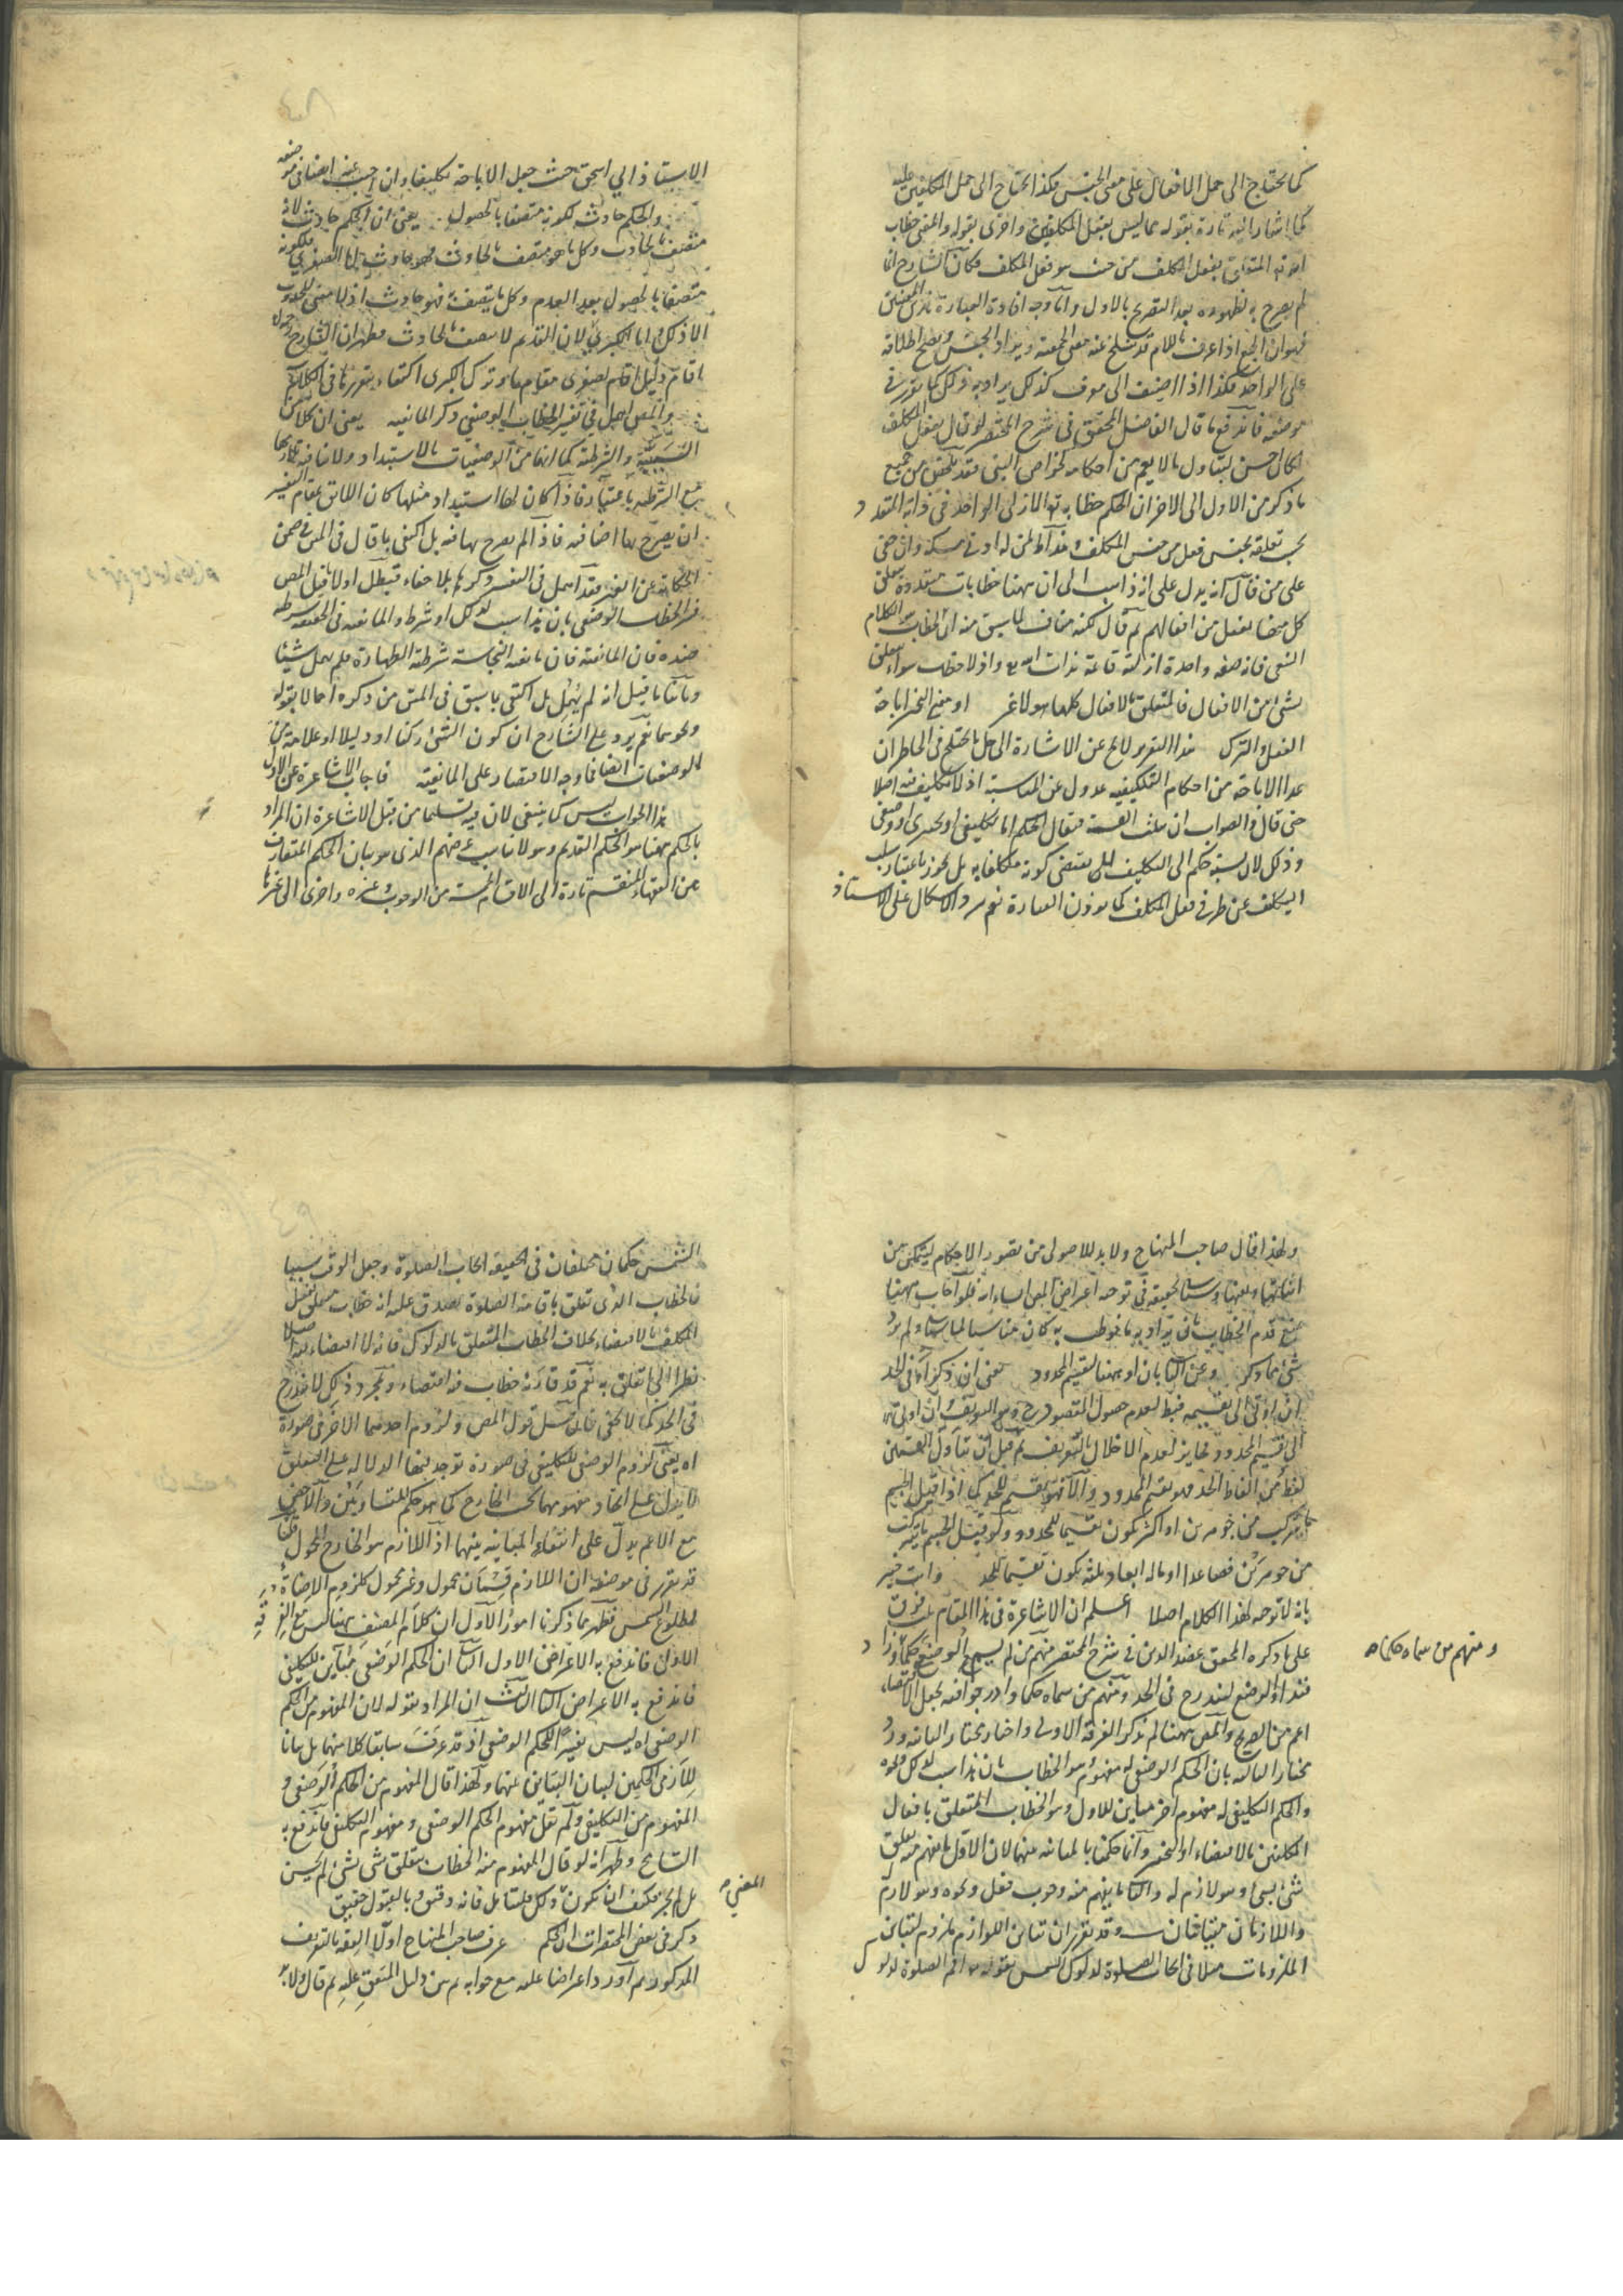 كما يحتاج الى حمل الافعال على معنى الجنس فكذا يحتاج الى حمل المكلفين عليه
كما اشار اليه تارة بقوله مما ليس بفعل المكلفين واخرى بقوله والمعنى خطاب
الله تعالى المتعلق بفعل المكلف من حيث هو فعل المكلف فكان الشارح انما
لم يصرح به لظهوره بعد التصريح بالاول واما وجه افادة العبارة
فهو ان الجمع اذا عرف باللام قد ينسلخ عنه معنى الجمعية ويراد الجنس ويصح اطلاقه
على الواحد فكذا اذا اضيف الى معرف كذلك يراد به ذلك كما تقرر في
موضعه فاندفع ما قال الفاضل المحقق في شرح المختصر لو قال بفعل المكلف
لكان احسن ليتناول ما لا يعم من احكامه كخواص النبي فقد تحقق من جميع
ما ذكر من الاول الى الاخر ان الحكم خطابه تعالى الازلي الواحد في ذاته المتعدد
بحسب تعلقه بجنس فعل من جنس المكلف وهذا ظ لمن له ادنى مسكة وان خفي
على من قال انه يدل على انه ذاهب الى ان ههنا خطابات متعددة متعلق
كل منها بفعل من افعالهم ثم قال لكنه مناف لما سبق منه ان الخطاب الكلام
النفسي فانه صفة واحدة ازلية قائمة بذات الله تع واذ لا خطاب سواه متعلق
بشئ من الافعال فالمتعلق بالافعال كلها هو لا غير او منع التخيير اباحة
الفعل والترك هذا التقرير لا يخ عن الاشارة الى حل ما يختلج في الخاطر ان
عد الاباحة من احكام التكليفية عدول عن المناسبة اذ لا تكليف فيه اصلا
حتى قال والصواب ان يثلث القسمة فيقال الحكم اما تكليفي او تخييري او وضعي
وذلك لان نسبة حكم الى التكليف لا يقتضي كونه مكلفا به بل يجوز باعتبار سلب
التكليف عن طرفي فعل المكلف كما يوذن العبارة نعم يرد الاشكال على الاستاذ
الاستاذ ابي اسحق حيث جعل الاباحة تكليفا وان اجيب عنه ايضا في موضعه
والحكم حادث لكونه متصفا بالحصول يعني ان الحكم حادث لانه
متصف بالحادث وكل ما هو متصف بالحادث فهو حادث اما الصغرى فلكونه
متصفا بالحصول بعد العدم وكل ما يتصف به فهو حادث اذ لا معنى للحدوث
الا ذلك واما الكبرى فلان القديم لا يتصف بالحادث فظهر ان الشارح
اقام دليل الصغرى مقامها وترك الكبرى اكتفاء بتقررها في الكلام
والمص اهمل في تفسير الخطاب الوضعي ذكر المانعية يعني ان كلا من
السببية والشرطية كما انها من الوضعيات بالاستبداد
مع الشرطية فاذا كان لها استبداد مثلها كان اللائق بمقام التفسير
ان يصرح بها اضافة فاذ لم يصرح بها فيه بل اكتفى بما قال في المتن في ضمن
الحكاية عن الغير فقد اهمل في التفسير ذكرها بلا خفاء فبطل اولا ما قيل المص
فسر الخطاب الوضعي بان هذا سبب لذلك او شرطه والمانعية في الحقيقة شرطية
ضده فان المانعية فان مانعية النجاسة شرطية الطهارة فلم يهمل شيئا
وثانيا ما قيل انه لم يهمل بل اكتفى بما سبق في المتن من ذكره اجمالا بقوله
ونحوهما نعم يرد على الشارح ان كون الشئ ركنا او دليلا او علامة من
الوضعيات ايضا فما وجه الاقتصار على المانعية فاجاب الاشاعرة عن الاول
هذا الجواب ليس كما ينبغي لان فيه تسليما من قبل الاشاعرة ان المراد
بالحكم ههنا هو الحكم القديم وهو لا يناسب غرضهم الذي هو بيان الحكم المتعارف
بين الفقهاء المنقسم تارة الى الاقسام الخمسة من الوجوب وغيره واخرى الى غيرها
ولهذا قال صاحب المنهاج ولا بد للاصولي من تصور الاحكام ليتمكن من
اثباتها ونفيها
منع قدم الخطاب بان يراد به ما خوطب به كان مناسبا لمباحثنا ولم يرد
شئ مما ذكر وعن الثانى بان او ههنا لتقسيم المحدود يعني ان ذكر او في الحد
ان ادى الى تقسيمه فبط لعدم حصول المقصود ح وهو التعريف وان ادى
الى تقسيم المحدود فجايز لعدم الاخلال بالتعريف ثم قيل ان تناول القسمين
لفظ من الفاظ الحد فهو تقسيم المحدود والا فهو تقسيم للحد كما اذا قيل الجسم
ما يتركب من جوهرين او اكثر يكون تقسيما للمحدود ولو قيل الجسم ما يتركب
من جوهرين فصاعدا او ما له ابعاد ثلثة يكون تقسيما للحد وانت خبير
بانه لا توجه لهذا الكلام اصلا اعلم ان الاشاعرة في هذا المقام ثلث فرق
على ما ذكره المحقق عضد الدين في شرح المختصر منهم من لم يسم الوضع حكما
ومنهم من سماه حكما
فزاد او الوضع ليندرج في الحد ومنهم من سماه حكما وادرجوا فيه بجعل الاقتضاء
اعم من الصريح والمص ههنا لم يذكر الفرقة الاولى واختار مختار الثانية ورد
مختار الثالثة بان الحكم الوضعي له مفهوم هو الخطاب بان هذا سبب لذلك ونحوه
والحكم التكليفي له مفهوم اخر مباين للاول وهو الخطاب المتعلق بافعال
المكلفين بالاقتضاء او التخيير وانما حكمنا بالمباينة بينهما لان الاول ما يفهم منه تعلق
شئ بشئ وهو لازم له والثاني ما يفهم منه وجوب فعل ونحوه وهو لازم
واللازمان متباينان وقد تقرر ان تباين اللوازم ملزوم لتباين
الملزومات مثلا في ايجاب الصلوة لدلوك الشمس بقوله تعالى اقم الصلوة لدلوك
الشمس حكمان مختلفان في الحقيقة ايجاب الصلوة وجعل الوقت سببا
فالخطاب الذي تعلق باقامة الصلوة يصدق عليه انه خطاب متعلق بفعل
المكلف بالاقتضاء بخلاف الخطاب المتعلق بالدلوك فانه لا اقتضاء فيه اصلا
نظرا الى ما تعلق به نعم قد قارنه خطاب فيه اقتضاء ومجرد ذلك لا يندرج
في الحد كما لا يخفى قول المص ولزوم احدهما الاخر في صورة
اه يعني لزوم الوضعي للتكليفي في صورة توجد فيها الدلالة على التعلق
لا يدل على اتحاد مفهوميهما بحسب الخارج كما هو حكم المتساويين والاخص
مع الاعم يدل على انتفاء المباينة بينهما اذ اللازم هو الخارج المحمول قلنا
قد تقرر في موضعه ان اللازم قسمان محمول وغير محمول كلزوم الاضاءة
لطلوع الشمس فظهر مما ذكرنا امور الاول ان كلام المصنف ههنا ليس مع الفرقة
الاولى فاندفع به الاعتراض الاول الثاني ان الحكم الوضعي مباين للتكليفي
فاندفع به الاعتراض الثاني الثالث ان المراد بقوله لان المفهوم من الحكم
الوضعي اه ليس تفسيرا للحكم الوضعي اذ قد عرفت سابقا كلا منهما بل بيانا
للازمي الحكمين لبيان التباين بينهما ولهذا قال المفهوم من الحكم الوضعي و
المفهوم من التكليفي ولم يقل مفهوم الحكم الوضعي ومفهوم التكليفي فاندفع به
التسامح وظهر انه لو قال المفهوم منه الخطاب بتعلق شئ بشئ لم يحسن
المعنى
بل لم يجز فكيف ان يكون وذلك فليتامل فانه دقيق وبالقبول حقيق
ذكر في بعض المختصرات ان الحكم عرف صاحب المنهاج اولا الفقه بالتعريف
المذكور ثم اورد اعتراضا عليه مع جوابه ثم بين دليل المتفق عليه ثم قال ولا بد